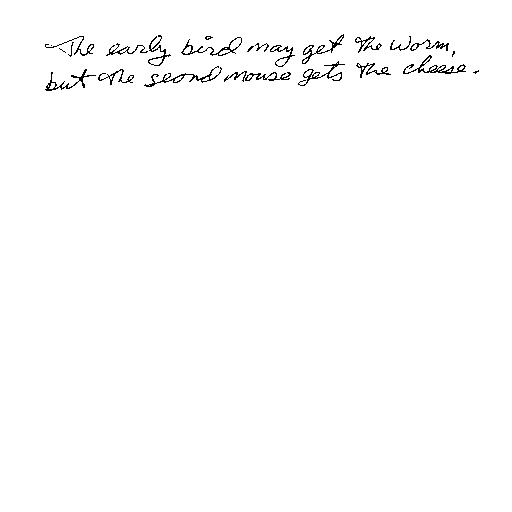 The early bird may get the worm,
but the seond mouse gets the cheese.